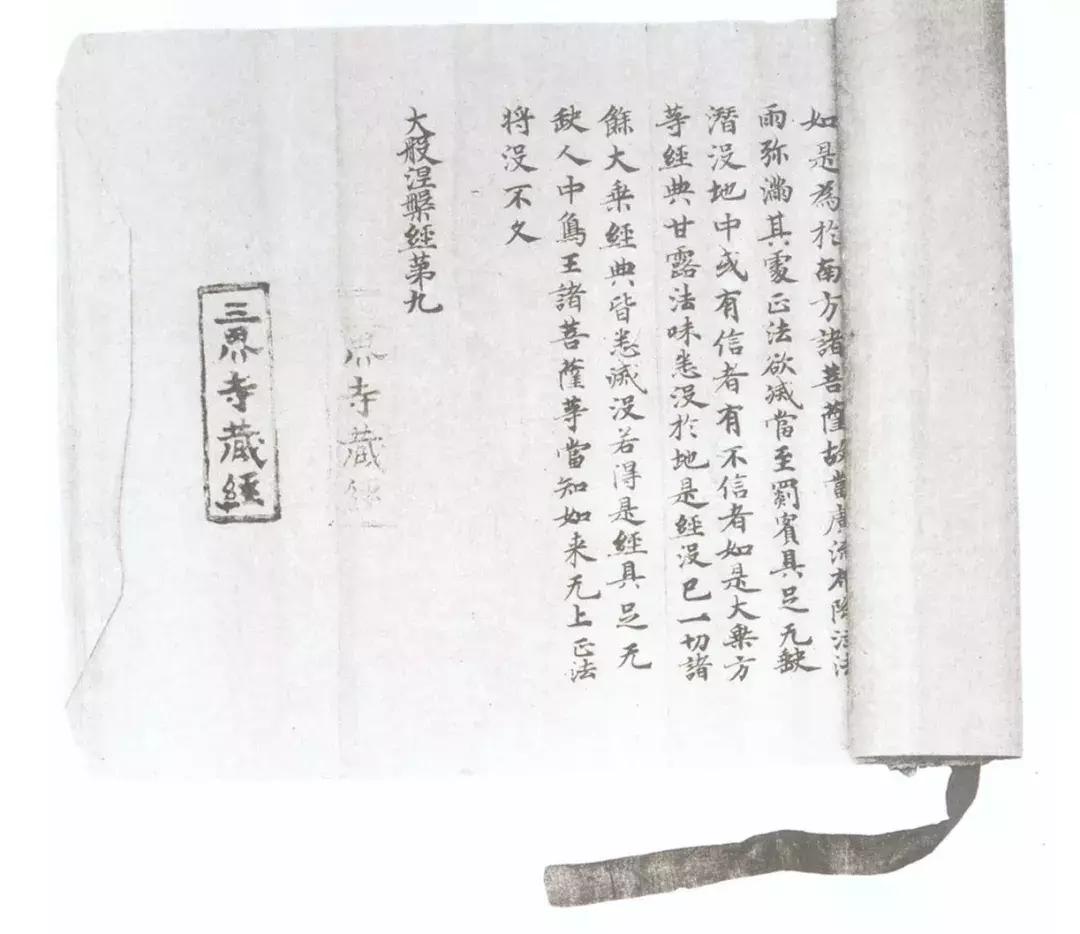 如是為於南方諸菩薩故當廣流布降注法
雨弥滿其處正法欲滅當至罽賓具足无缺
潛没地中或有信者有不信者如是大乗方
等經典甘露法味悉没於地是經没已一切諸
餘大乗經典皆悉滅没若得是經具足无
缺人中烏王諸菩薩等當知如来无上正法
将没不久
大般涅槃經第九
界寺藏經
三界寺藏經